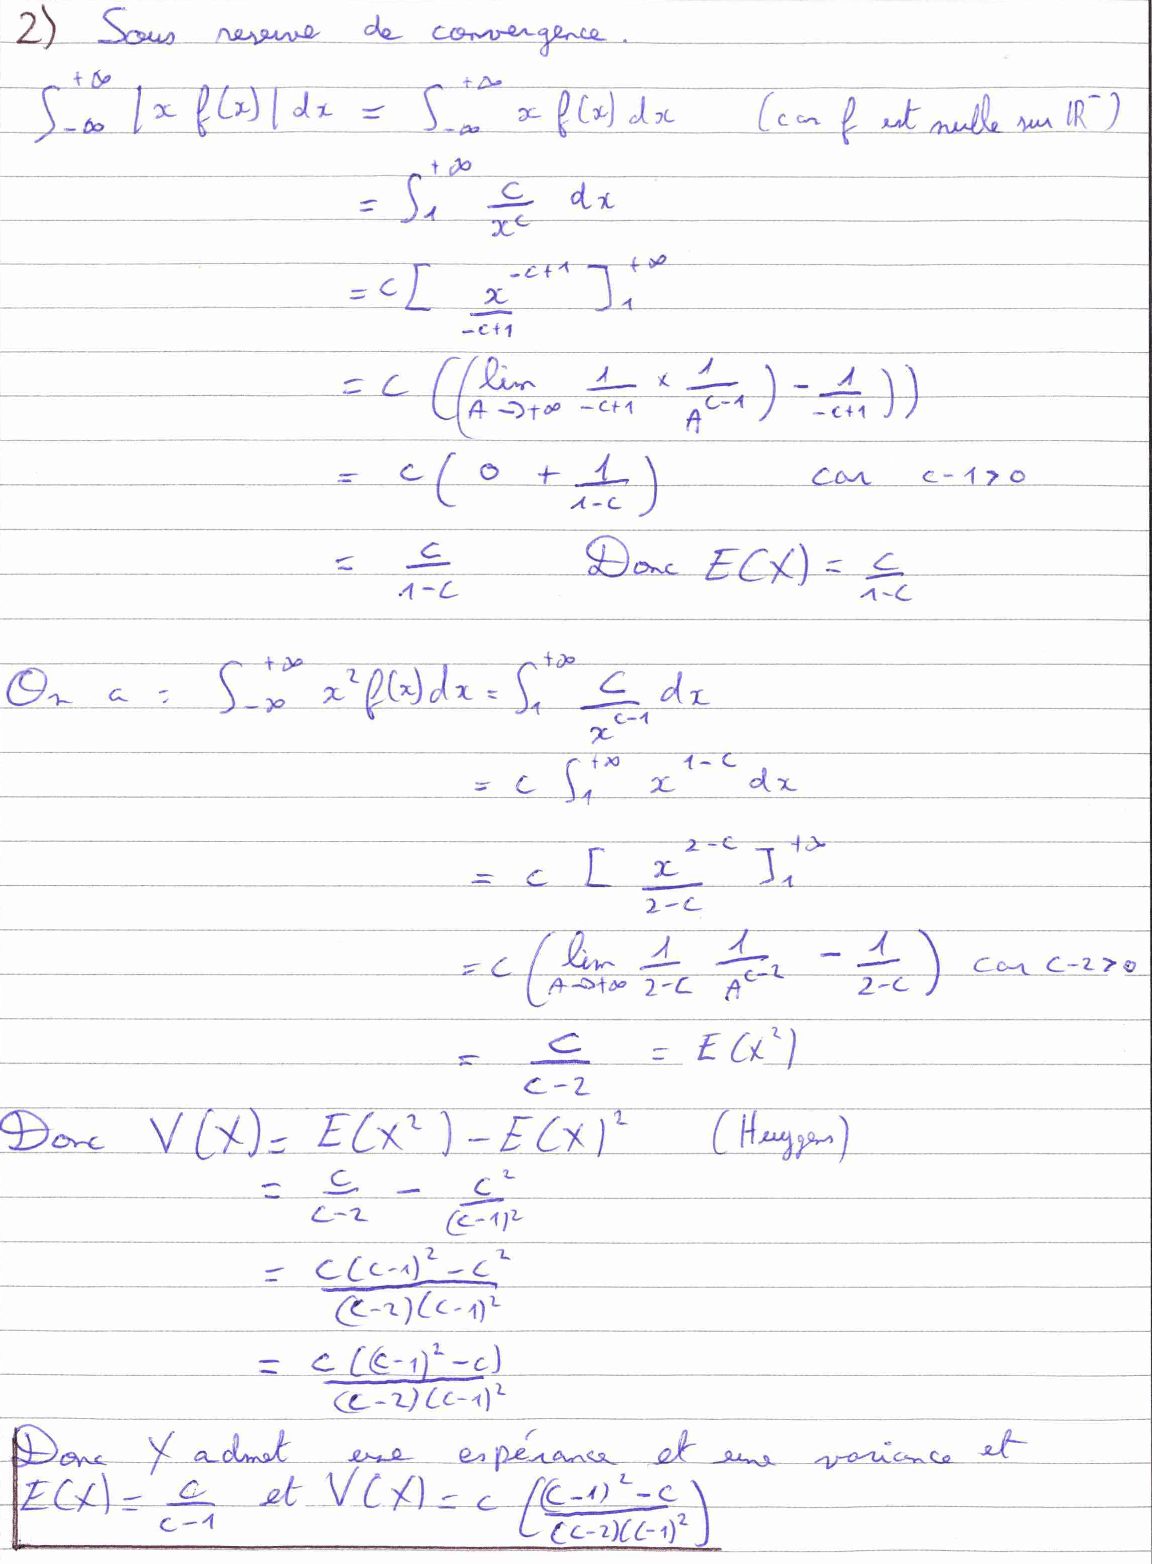 2) Sous reserve de convergence.
∫_{-∞}^{+∞} |x f(x)| dx = ∫_{-∞}^{+∞} x f(x) dx (car f est nulle sur ℝ⁻)
= ∫_1^{+∞} c/x^c dx
= c [ x^{-c+1}/(-c+1) ]_1^{+∞}
= c ((lim_{A→+∞} 1/(-c+1) × 1/A^{c-1}) - 1/(-c+1)))
= c ( 0 + 1/(1-c) ) car c-1>0
= c/(1-c) Donc E(X) = c/(1-c)
On a : ∫_{-∞}^{+∞} x² f(x) dx = ∫_1^{+∞} c/x^{c-1} dx
= c ∫_1^{+∞} x^{1-c} dx
= c [ x^{2-c}/(2-c) ]_1^{+∞}
= c ( lim_{A→+∞} 1/(2-c) 1/A^{c-2} - 1/(2-c) ) car c-2>0
= c/(c-2) = E(X²)
Donc V(X) = E(X²) - E(X)² (Huygens)
= c/(c-2) - c²/(c-1)²
= (c(c-1)² - c²)/((c-2)(c-1)²)
= c((c-1)² - c)/((c-2)(c-1)²)
Donc X admet une espérance et une variance et
E(X) = c/(c-1) et V(X) = c ( ((c-1)² - c)/((c-2)(c-1)²) )